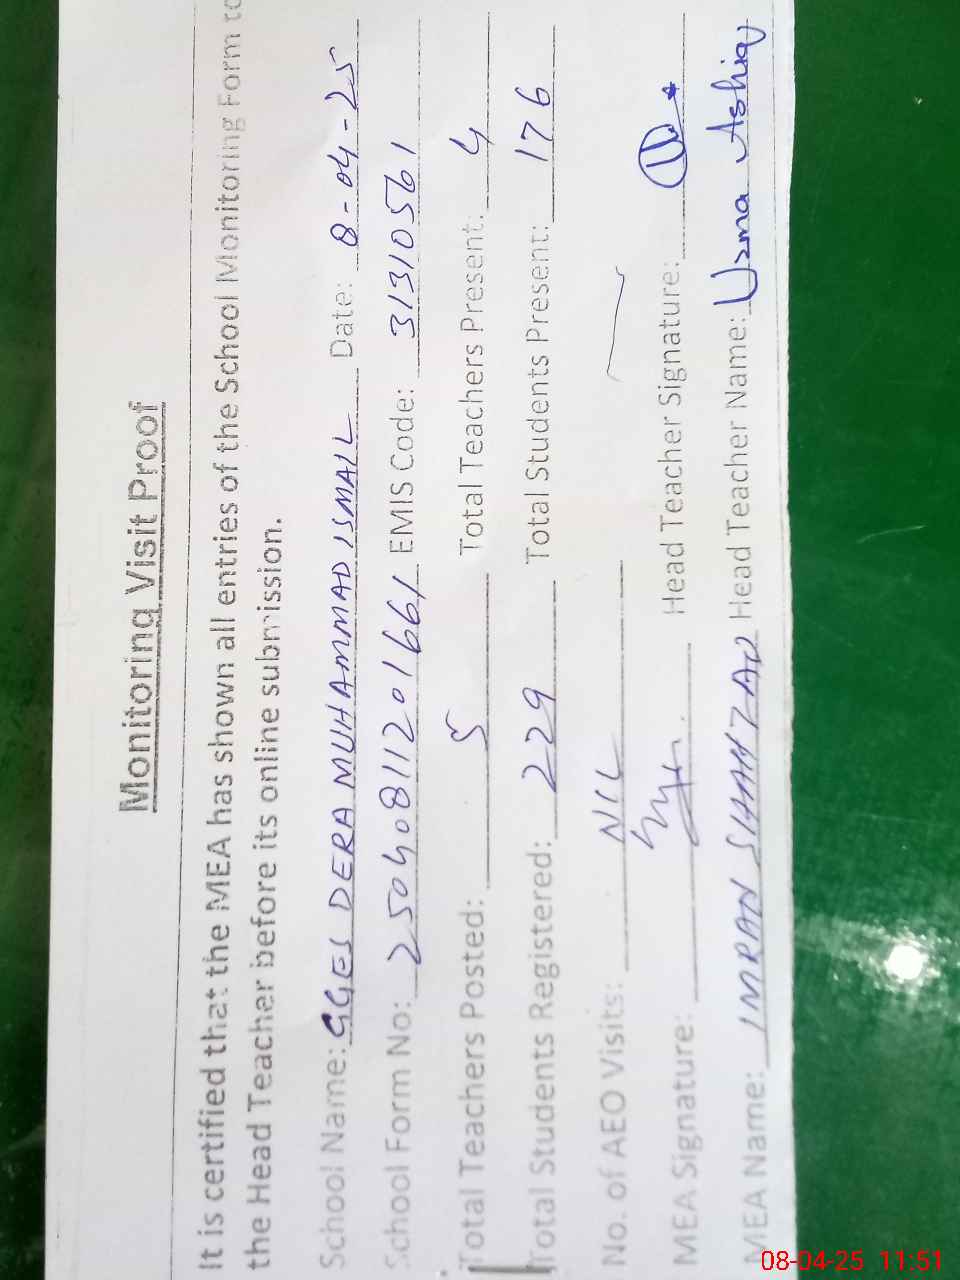 Monitoring Visit Proof
It is certified that the MEA has shown all entries of the School Monitoring Form to
the Head Teacher before its online submission.
School Name: GGES DERA MUHAMMAD ISMAIL Date: 8-04-25
School Form No: 25040811201661 EMIS Code: 31310561
Total Teachers Posted: 5 Total Teachers Present: 4
Total Students Registered: 229 Total Students Present: 176
No. of AEO Visits: NIL
MEA Signature: Head Teacher Signature:
MEA Name: IMRAN SHAHZAD Head Teacher Name: Uzma Ashiq
08-04-25 11:51